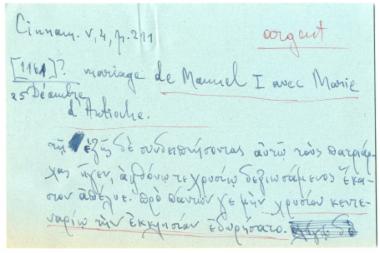 Cinnam. V, 4, p. 211
argent
[1161]? mariage de Manuel I avec Marie
25 Décembre
d'Antioche.
τῇ ἑξῆς δὲ συνδειπνήσοντας αὐτῷ τοὺς πατριάρ-
χας ἦγεν, ἀφθόνῳ τε χρυσίῳ δεξιωσάμενος ἕκα-
στον ἀπέλυε. πρὸ πάντων γε μὴν χρυσίου κεντε-
ναρίῳ τὴν ἐκκλησίαν ἐδωρήσατο.